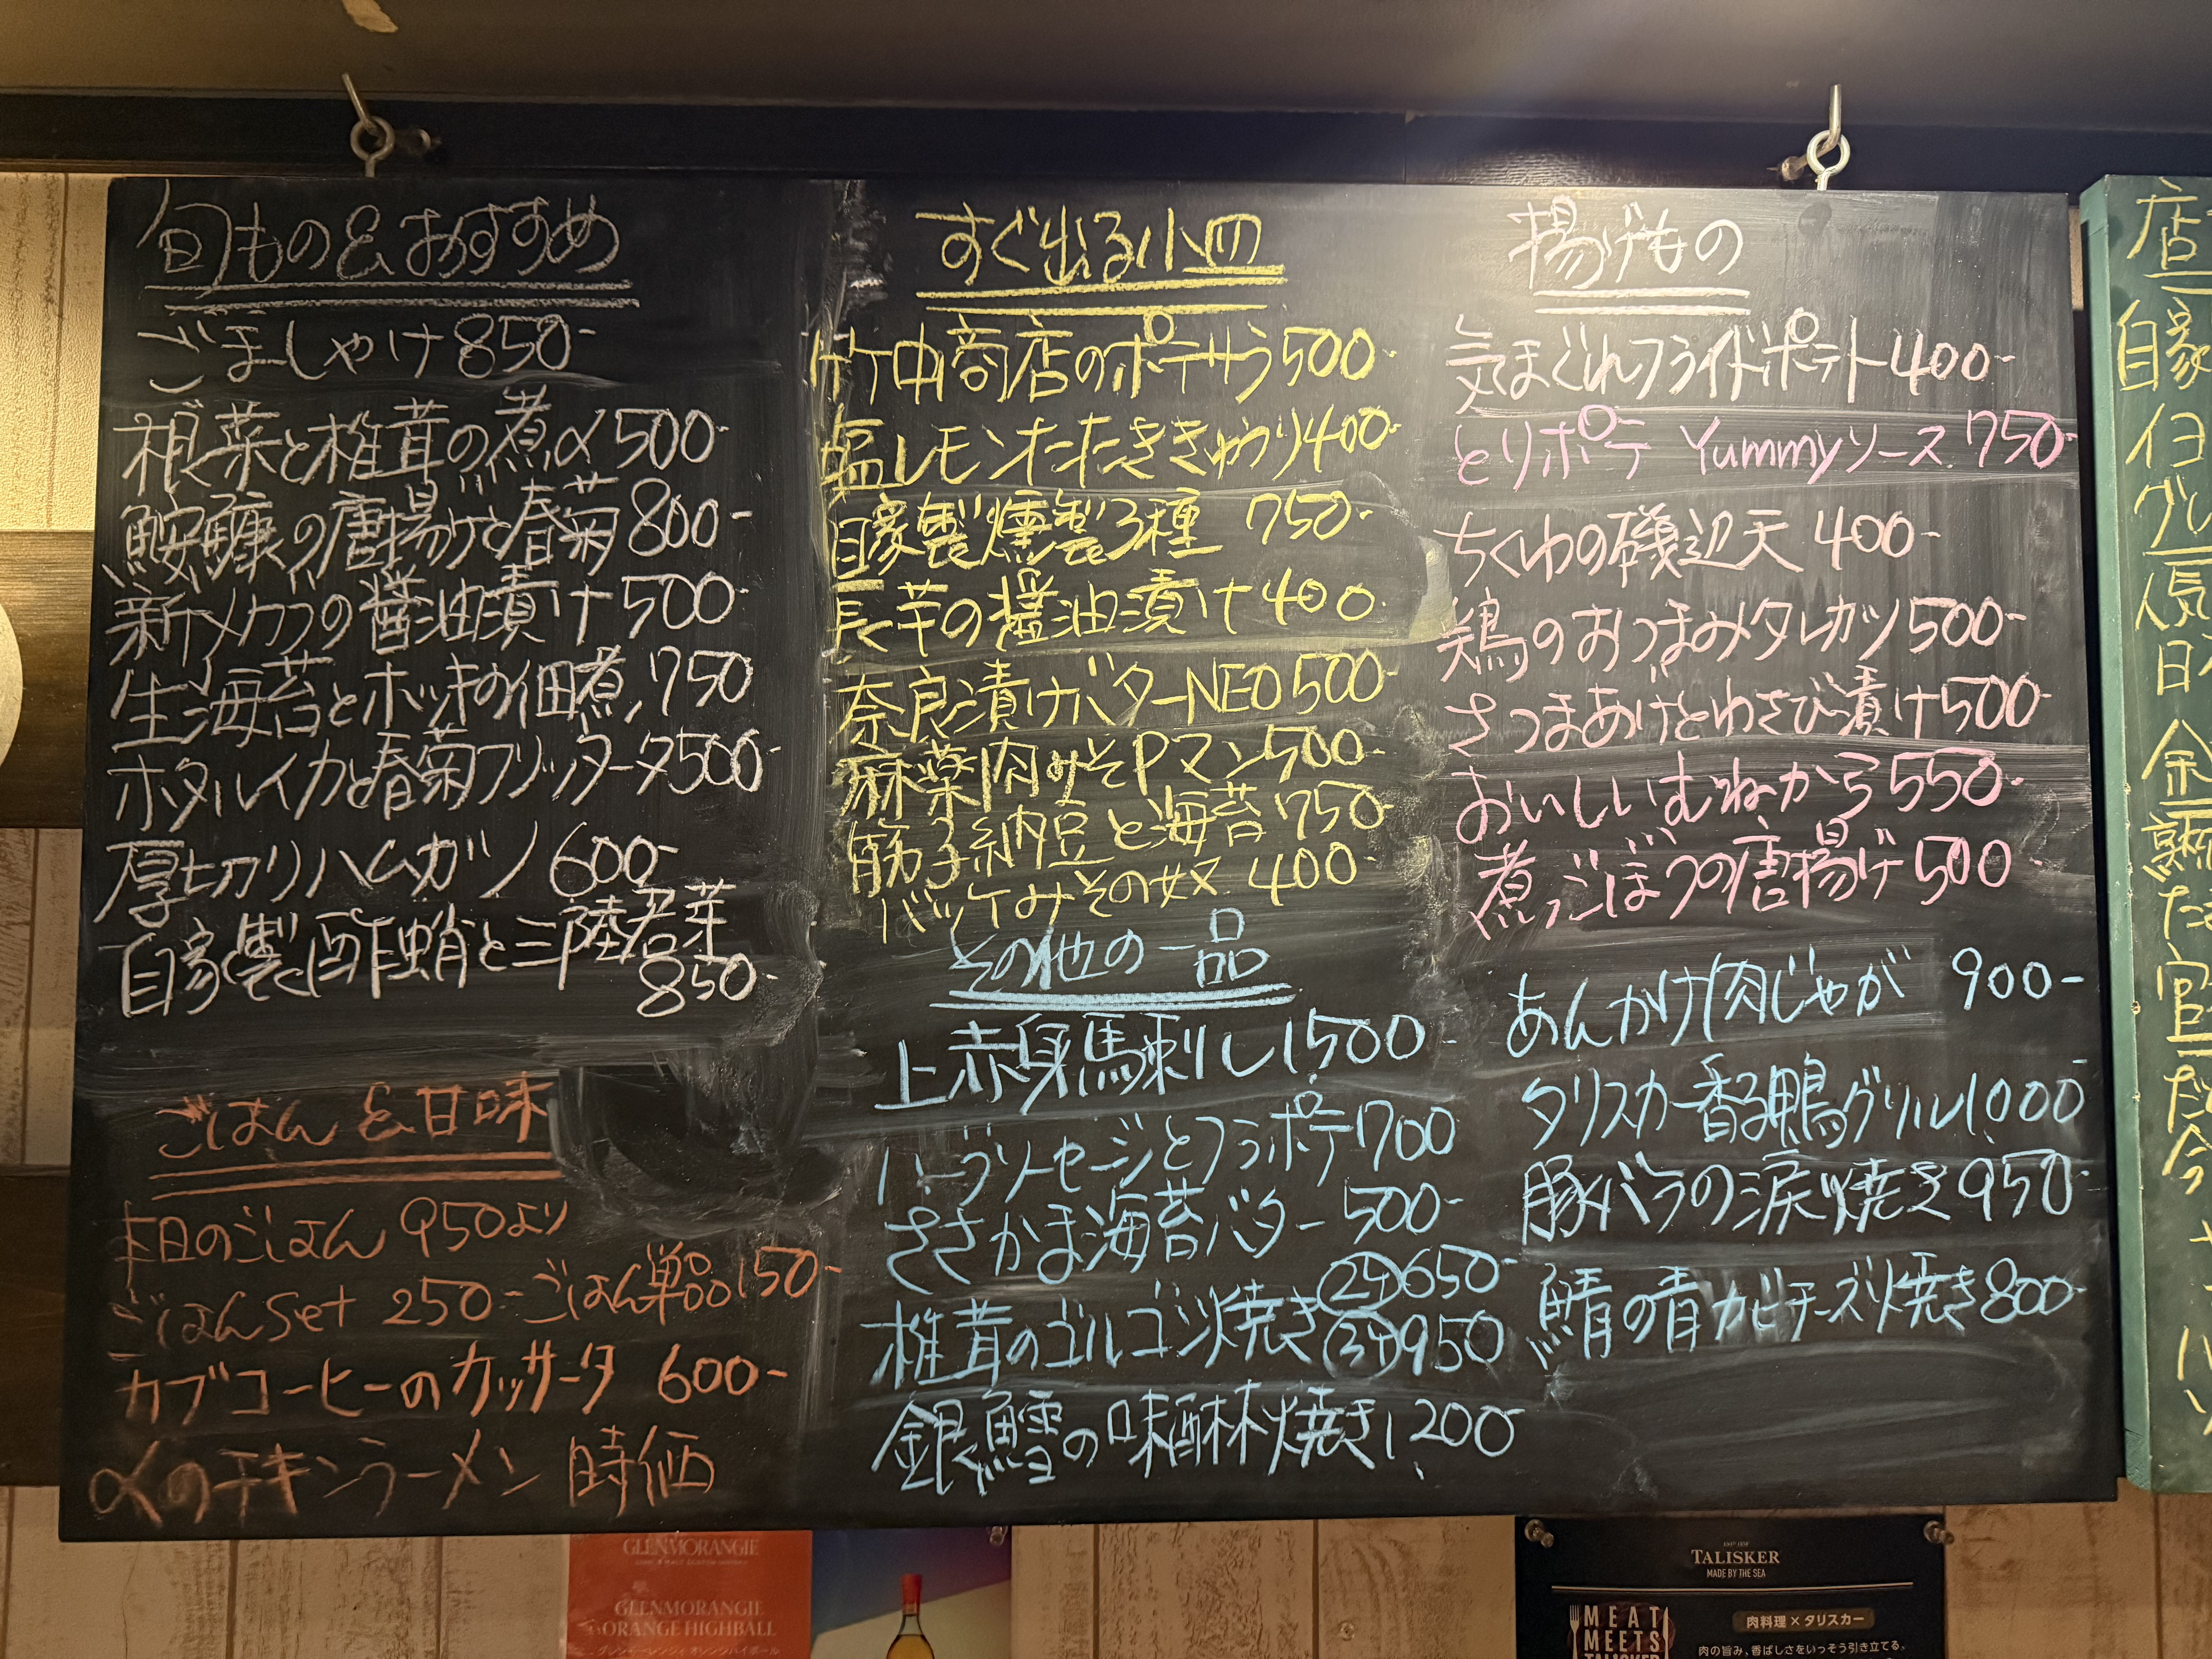 旬もの&おすすめ
ごましゃけ850-
根菜と椎茸の煮〆500-
鮟鱇の唐揚げと春菊800-
新メカブの醤油漬け500-
生海苔とホッキの佃煮750
ホタルイカと春菊フリッター500-
厚切りハムカツ600-
自家製酢蛸と三陸若芽
850-
ごはん&甘味
本日のごはん 950より
ごはんset 250-ごはん単品150-
カブコーヒーのカッサータ 600-
〆のチキンラーメン 時価
すぐ出る小皿
竹中商店のポテサラ500-
塩レモンたたききゅうり400-
自家製燻製3種 750-
長芋の醤油漬け400
奈良漬けバターNEO500-
麻薬肉みそPマン500-
筋子納豆と海苔750-
バッケみその奴 400-
その他の一品
上赤身馬刺し1500-
ハーブソーセージとフラポテ700
ささかま海苔バター500-
椎茸のゴルゴンゾ焼き
650-
950
銀鱈の味醂焼き1,200-
揚げもの
気まぐれフライドポテト400-
とりポテ Yummyソース750-
ちくわの磯辺天 400-
鶏のおつまみタレカツ500-
さつまあげとわさび漬け500-
おいしいむねから550-
煮ごぼうの唐揚げ500-
あんかけ肉じゃが 900-
タリスカー香る鴨グリル1,000-
豚バラの涙焼き950-
鯖の青カビチーズ焼き800-
店
自家
GLENMORANGIE
GLENMORANGIE
ORANGE HIGHBALL
TALISKER
MADE BY THE SEA
MEAT
MEETS
TALISKER
肉料理×タリスカー
肉の旨み、香ばしさをいっそう引き立てる。